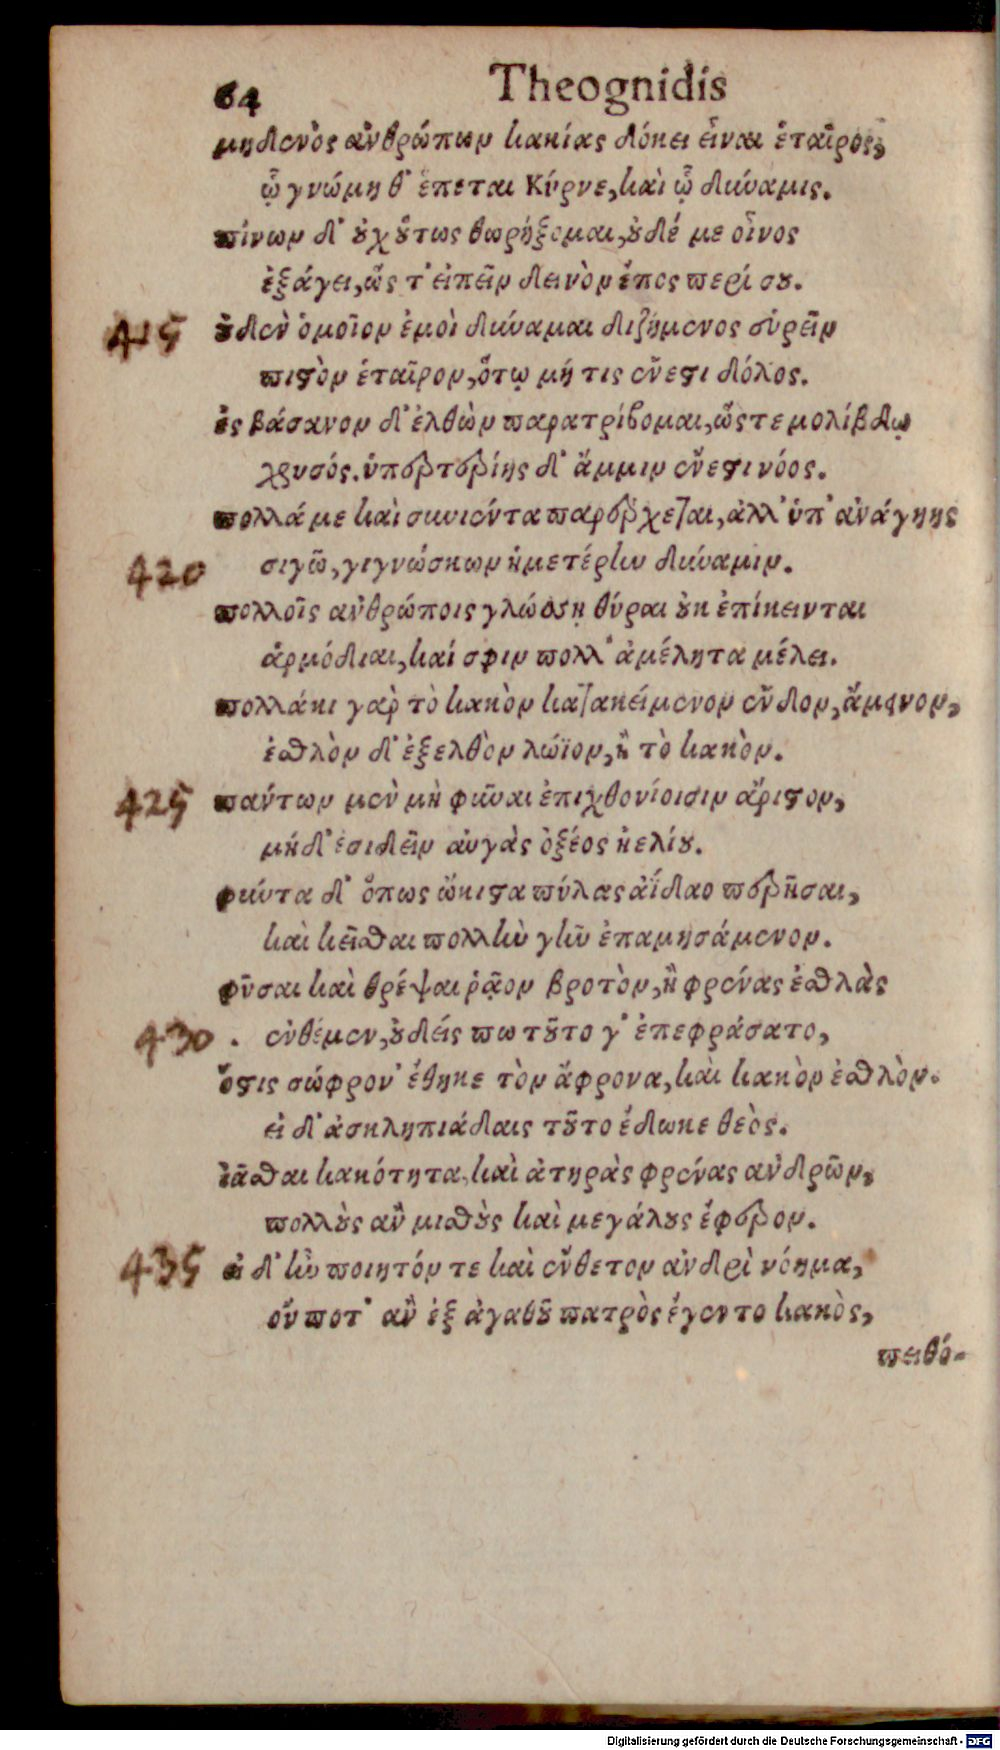 64 Theognidis
μηδενὸς ἀνθρώπων κακίας δόκει εἶναι ἑταῖρος,
ᾧ γνώμη θ᾽ ἕπεται Κύρνε, καὶ ᾧ δύναμις.
πίνων δ᾽ οὐχ οὕτως θωρήξομαι, οὐδέ με οἶνος
ἐξάγει, ὥς τ᾽ εἰπεῖν δεινὸν ἔπος περί σου.
415 οὐδὲν ὁμοῖον ἐμοὶ δύναμαι διζήμενος εὑρεῖν
πιστὸν ἑταῖρον, ὅτῳ μή τις ἔνεστι δόλος.
ἐς βάσανον δ᾽ ἐλθὼν παρατρίβομαι, ὥς τε μολίβδῳ
χρυσός. ὑπερτερίης δ᾽ ἄμμιν ἔνεστι νόος.
πολλά με καὶ συνιέντα παρέρχεται, ἀλλ᾽ ὑπ᾽ ἀνάγκης
420 σιγῶ, γιγνώσκων ἡμετέρην δύναμιν.
πολλοῖς ἀνθρώποις γλώσσῃ θύραι οὐκ ἐπίκεινται
ἁρμόδιαι, καί σφιν πολλ᾽ ἀμέλητα μέλει.
πολλάκι γὰρ τὸ κακὸν κατακείμενον ἔνδον, ἄμεινον,
ἐσθλὸν δ᾽ ἐξελθὸν λώϊον, ἢ τὸ κακὸν.
425 πάντων μὲν μὴ φῦναι ἐπιχθονίοισιν ἄριστον,
μήδ᾽ ἐσιδεῖν αὐγὰς ὀξέος ἠελίου.
φύντα δ᾽ ὅπως ὤκιστα πύλας ἀΐδαο περῆσαι,
καὶ κεῖσθαι πολλὴν γῆν ἐπαμησάμενον.
φῦσαι καὶ θρέψαι ῥᾷον βροτὸν, ἢ φρένας ἐσθλὰς
430 . ἐνθέμεν, οὐδείς πω τοῦτο γ᾽ ἐπεφράσατο,
ὅστις σώφρον᾽ ἔθηκε τὸν ἄφρονα, καὶ κακὸν ἐσθλὸν.
εἰ δ᾽ ἀσκληπιάδαις τοῦτο ἔδωκε θεὸς.
ἰᾶσθαι κακότητα, καὶ ἀτηρὰς φρένας ἀνδρῶν,
πολλοὺς ἂν μισθοὺς καὶ μεγάλους ἔφερον.
435 εἰ δ᾽ ἦν ποιητόν τε καὶ ἔνθετον ἀνδρὶ νόημα,
οὔ ποτ᾽ ἂν ἐξ ἀγαθοῦ πατρὸς ἔγεντο κακὸς,
πειθό-
Digitalisierung gefördert durch die Deutsche Forschungsgemeinschaft - DFG